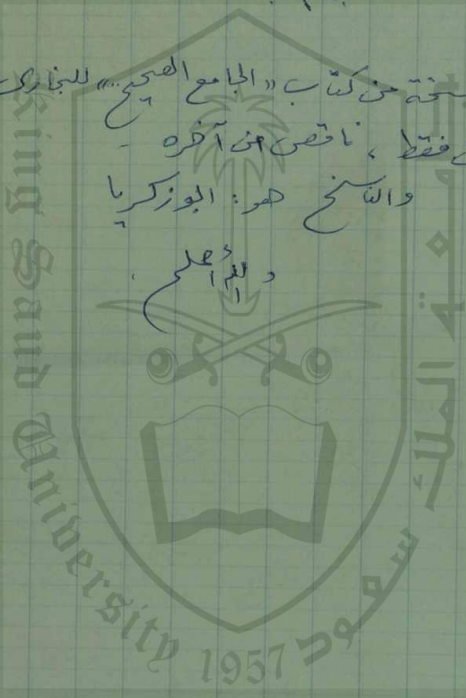 نسخة من كتاب "الجامع الصحيح" للبخاري
فقط ، ناقص من آخره -
والناسخ هو : ابوزكريا
والله أعلم .
King Saud University
1957
جامعة الملك سعود